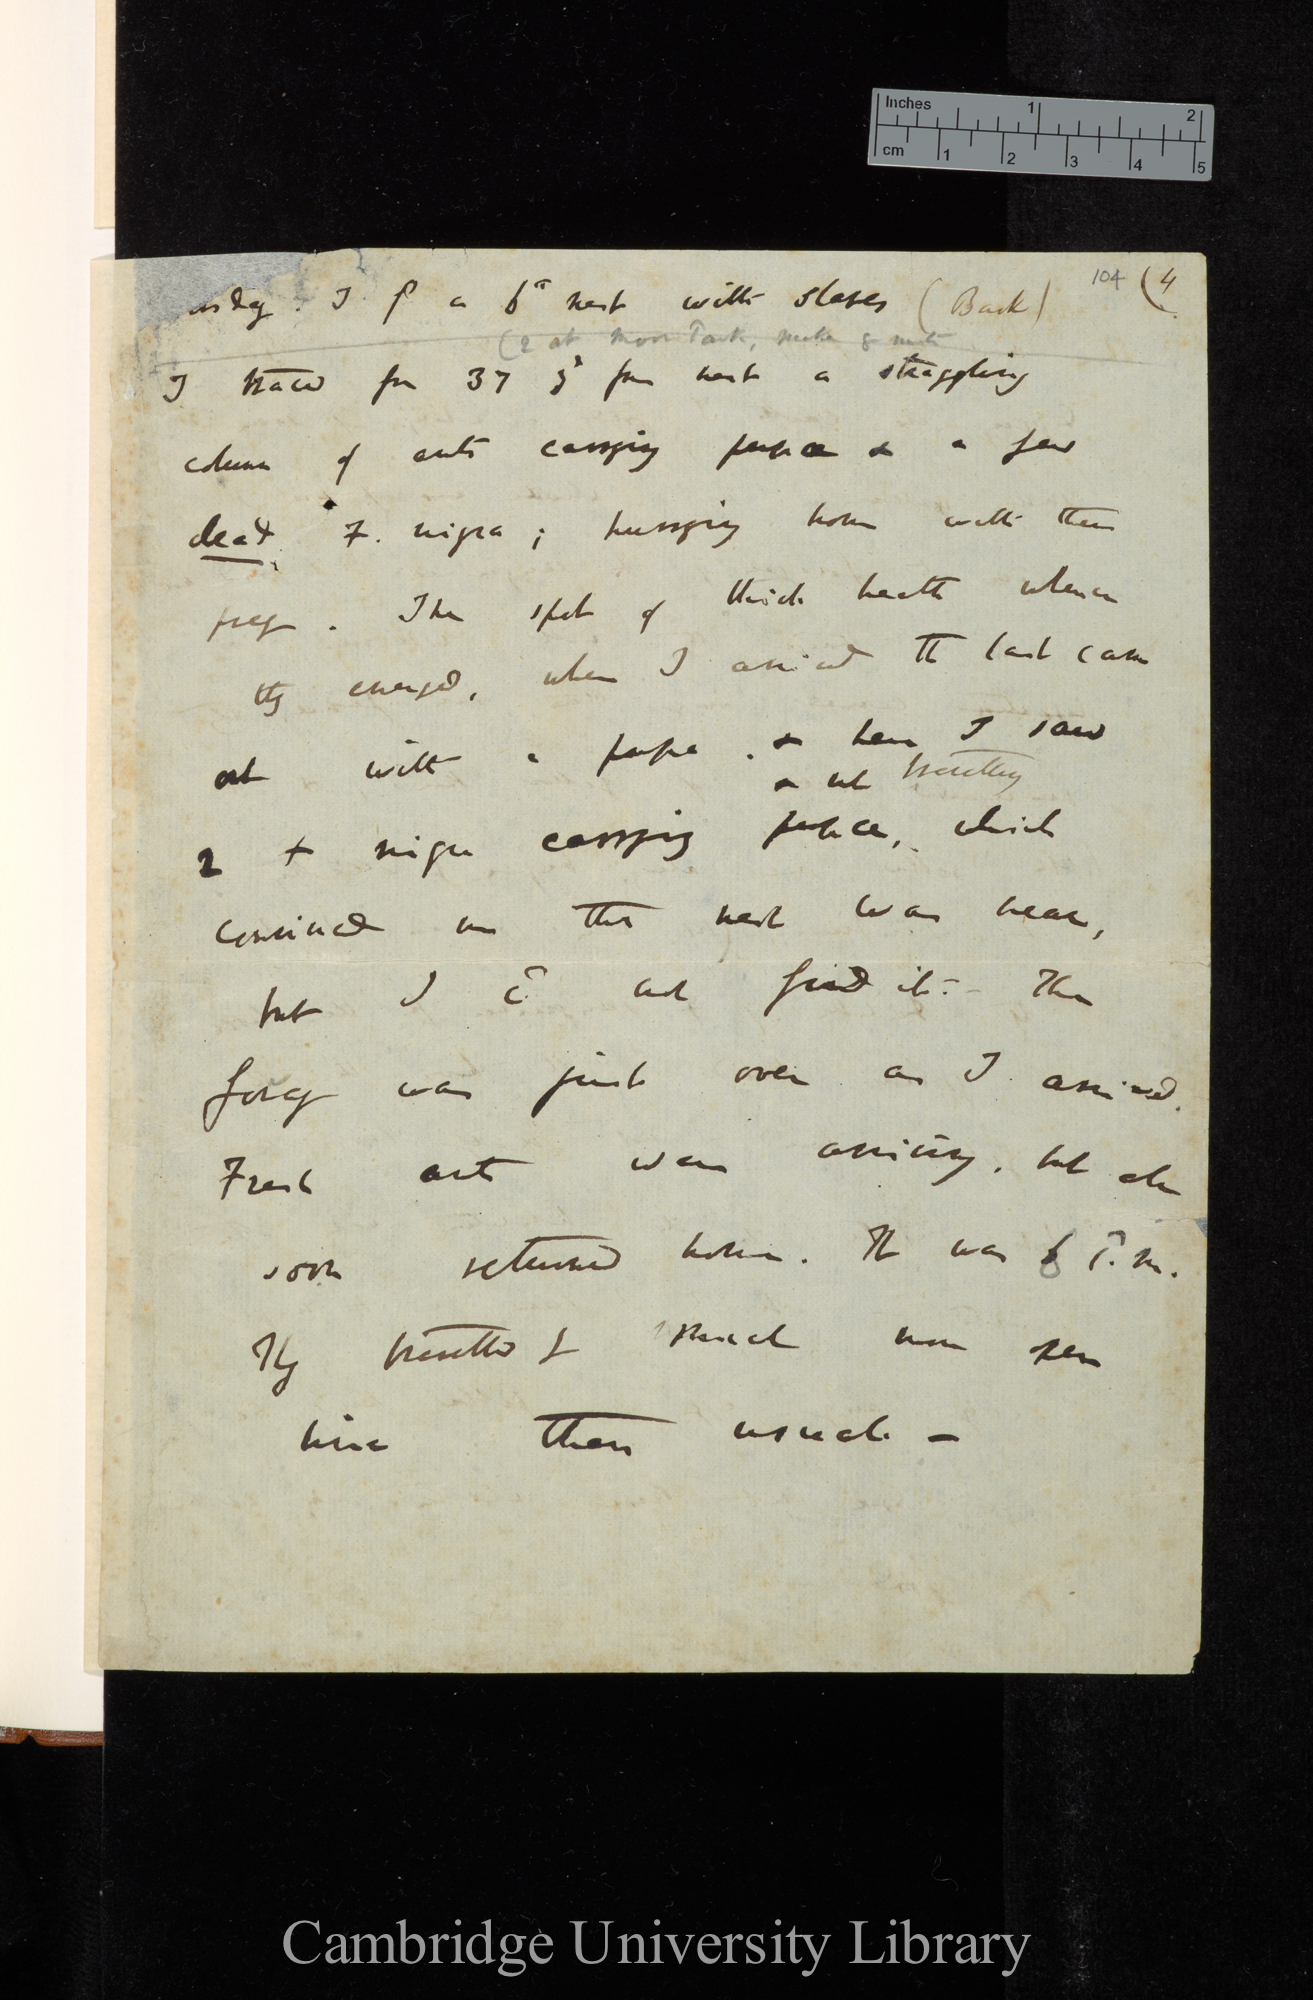 Inches 1 2
cm 1 2 3 4 5
104 (4
I f a 6th nest with slaves (Back)
(2 at Moor Park, make 8 nests
I traced for 37 y from nest a straggling
column of ants carrying pupæ & a few
dead F. nigra; hurrying home with their
prey. The spot of thick heath whence
they emerged, when I arrived the last came
out with a pupa. & here I saw
& not brisettling
2 F nigra carrying pupæ, which
convinced me this nest was near,
but I cd not find it. — The
foray was just over as I arrived.
Fresh ants were arriving, but also
soon returned home. It was 6 P.M.
They travelled much more
than usual —
Cambridge University Library